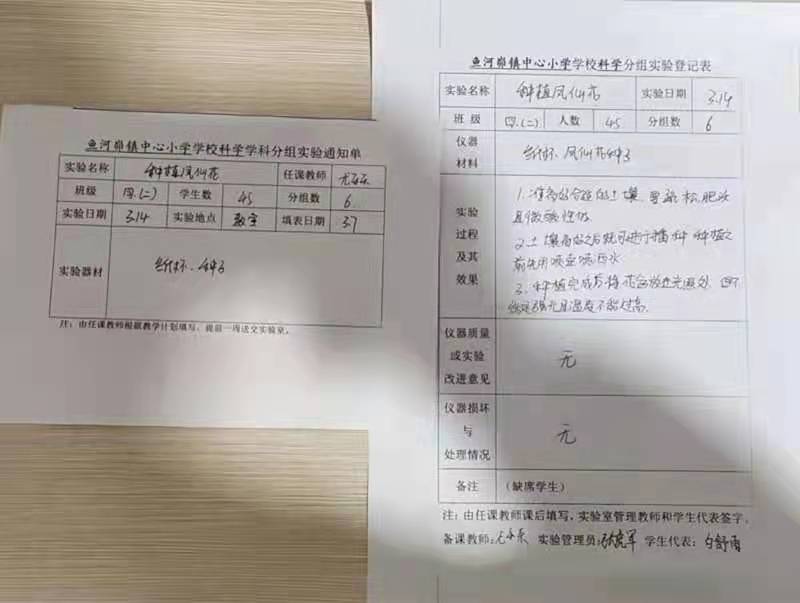 鱼河峁镇中心小学学校科学学科分组实验通知单
实验名称 种植凤仙花 任课教师
班级 四.(二) 学生数 45 分组数 6
实验日期 3.14 实验地点 教室 填表日期 3.7
实验器材 纸杯、种子
注：由任课教师根据教学计划填写，提前一周送交实验室。
鱼河峁镇中心小学学校科学分组实验登记表
实验名称 种植凤仙花 实验日期 3.14
班级 四.(二) 人数 45 分组数 6
仪器材料 纸杯、凤仙花种子
实验过程及其效果
1. 准备好合适的土壤，要疏松、肥沃
且微酸性的
2. 土壤备好之后就可进行播种 种植之
前先用喷壶喷洒水
3. 种植完成后将花盆放在光照处，但不
强光且温度不能过高.
仪器质量或实验改进意见 无
仪器损坏与处理情况 无
备注 （缺席学生）
注：由任课教师课后填写，实验室管理教师和学生代表签字。
备课教师： 实验管理员： 学生代表：白舒雨